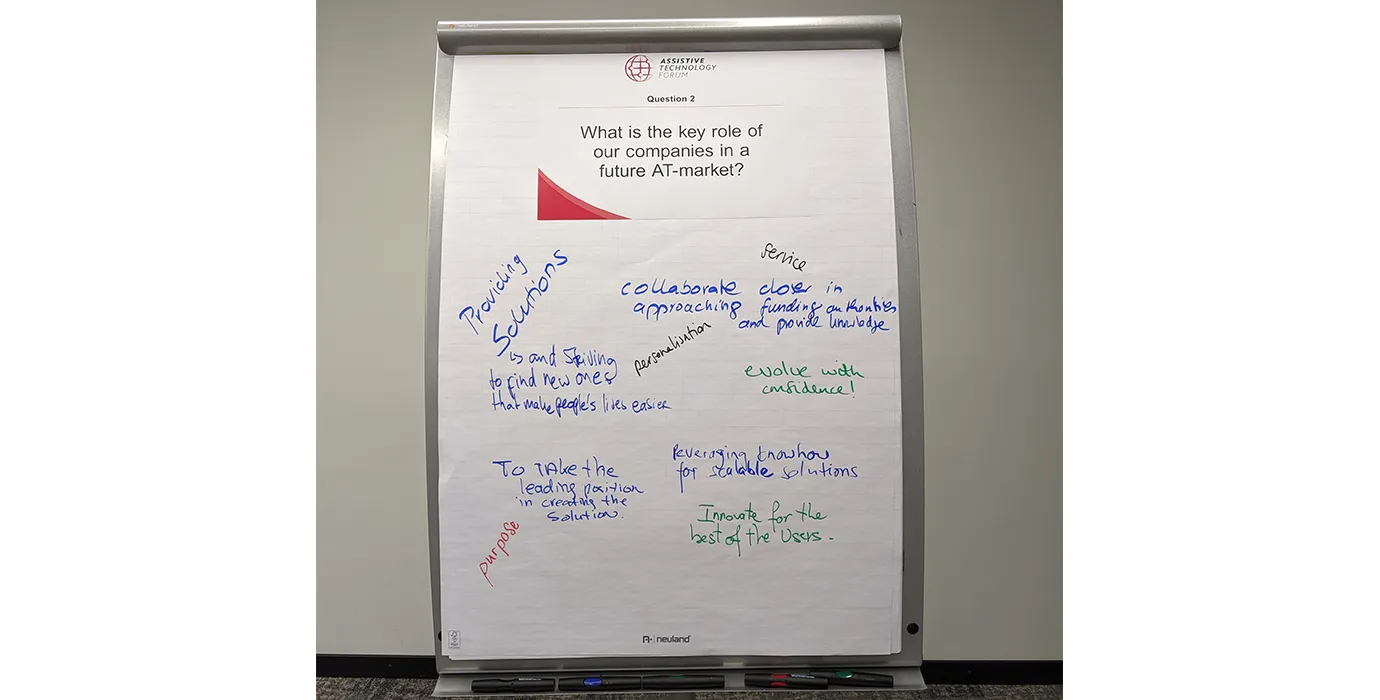 neuland
ASSISTIVE
TECHNOLOGY
FORUM
Question 2
What is the key role of
our companies in a
future AT-market?
Service
Providing
Solutions
collaborate closer in
approaching funding authorities
and provide knowledge
personalisation
↳ and striving
to find new ones
that make people's lives easier
evolve with
confidence!
To TAke the
leading position
in creating the
solution.
leveraging knowhow
for scalable solutions
Innovate for the
best of the Users.
purpose
neuland